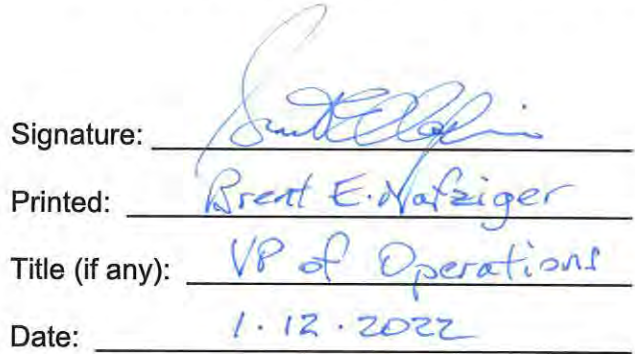 Signature:
Printed: Brent E. Nafziger
Title (if any): VP of Operations
Date: 1.12.2022